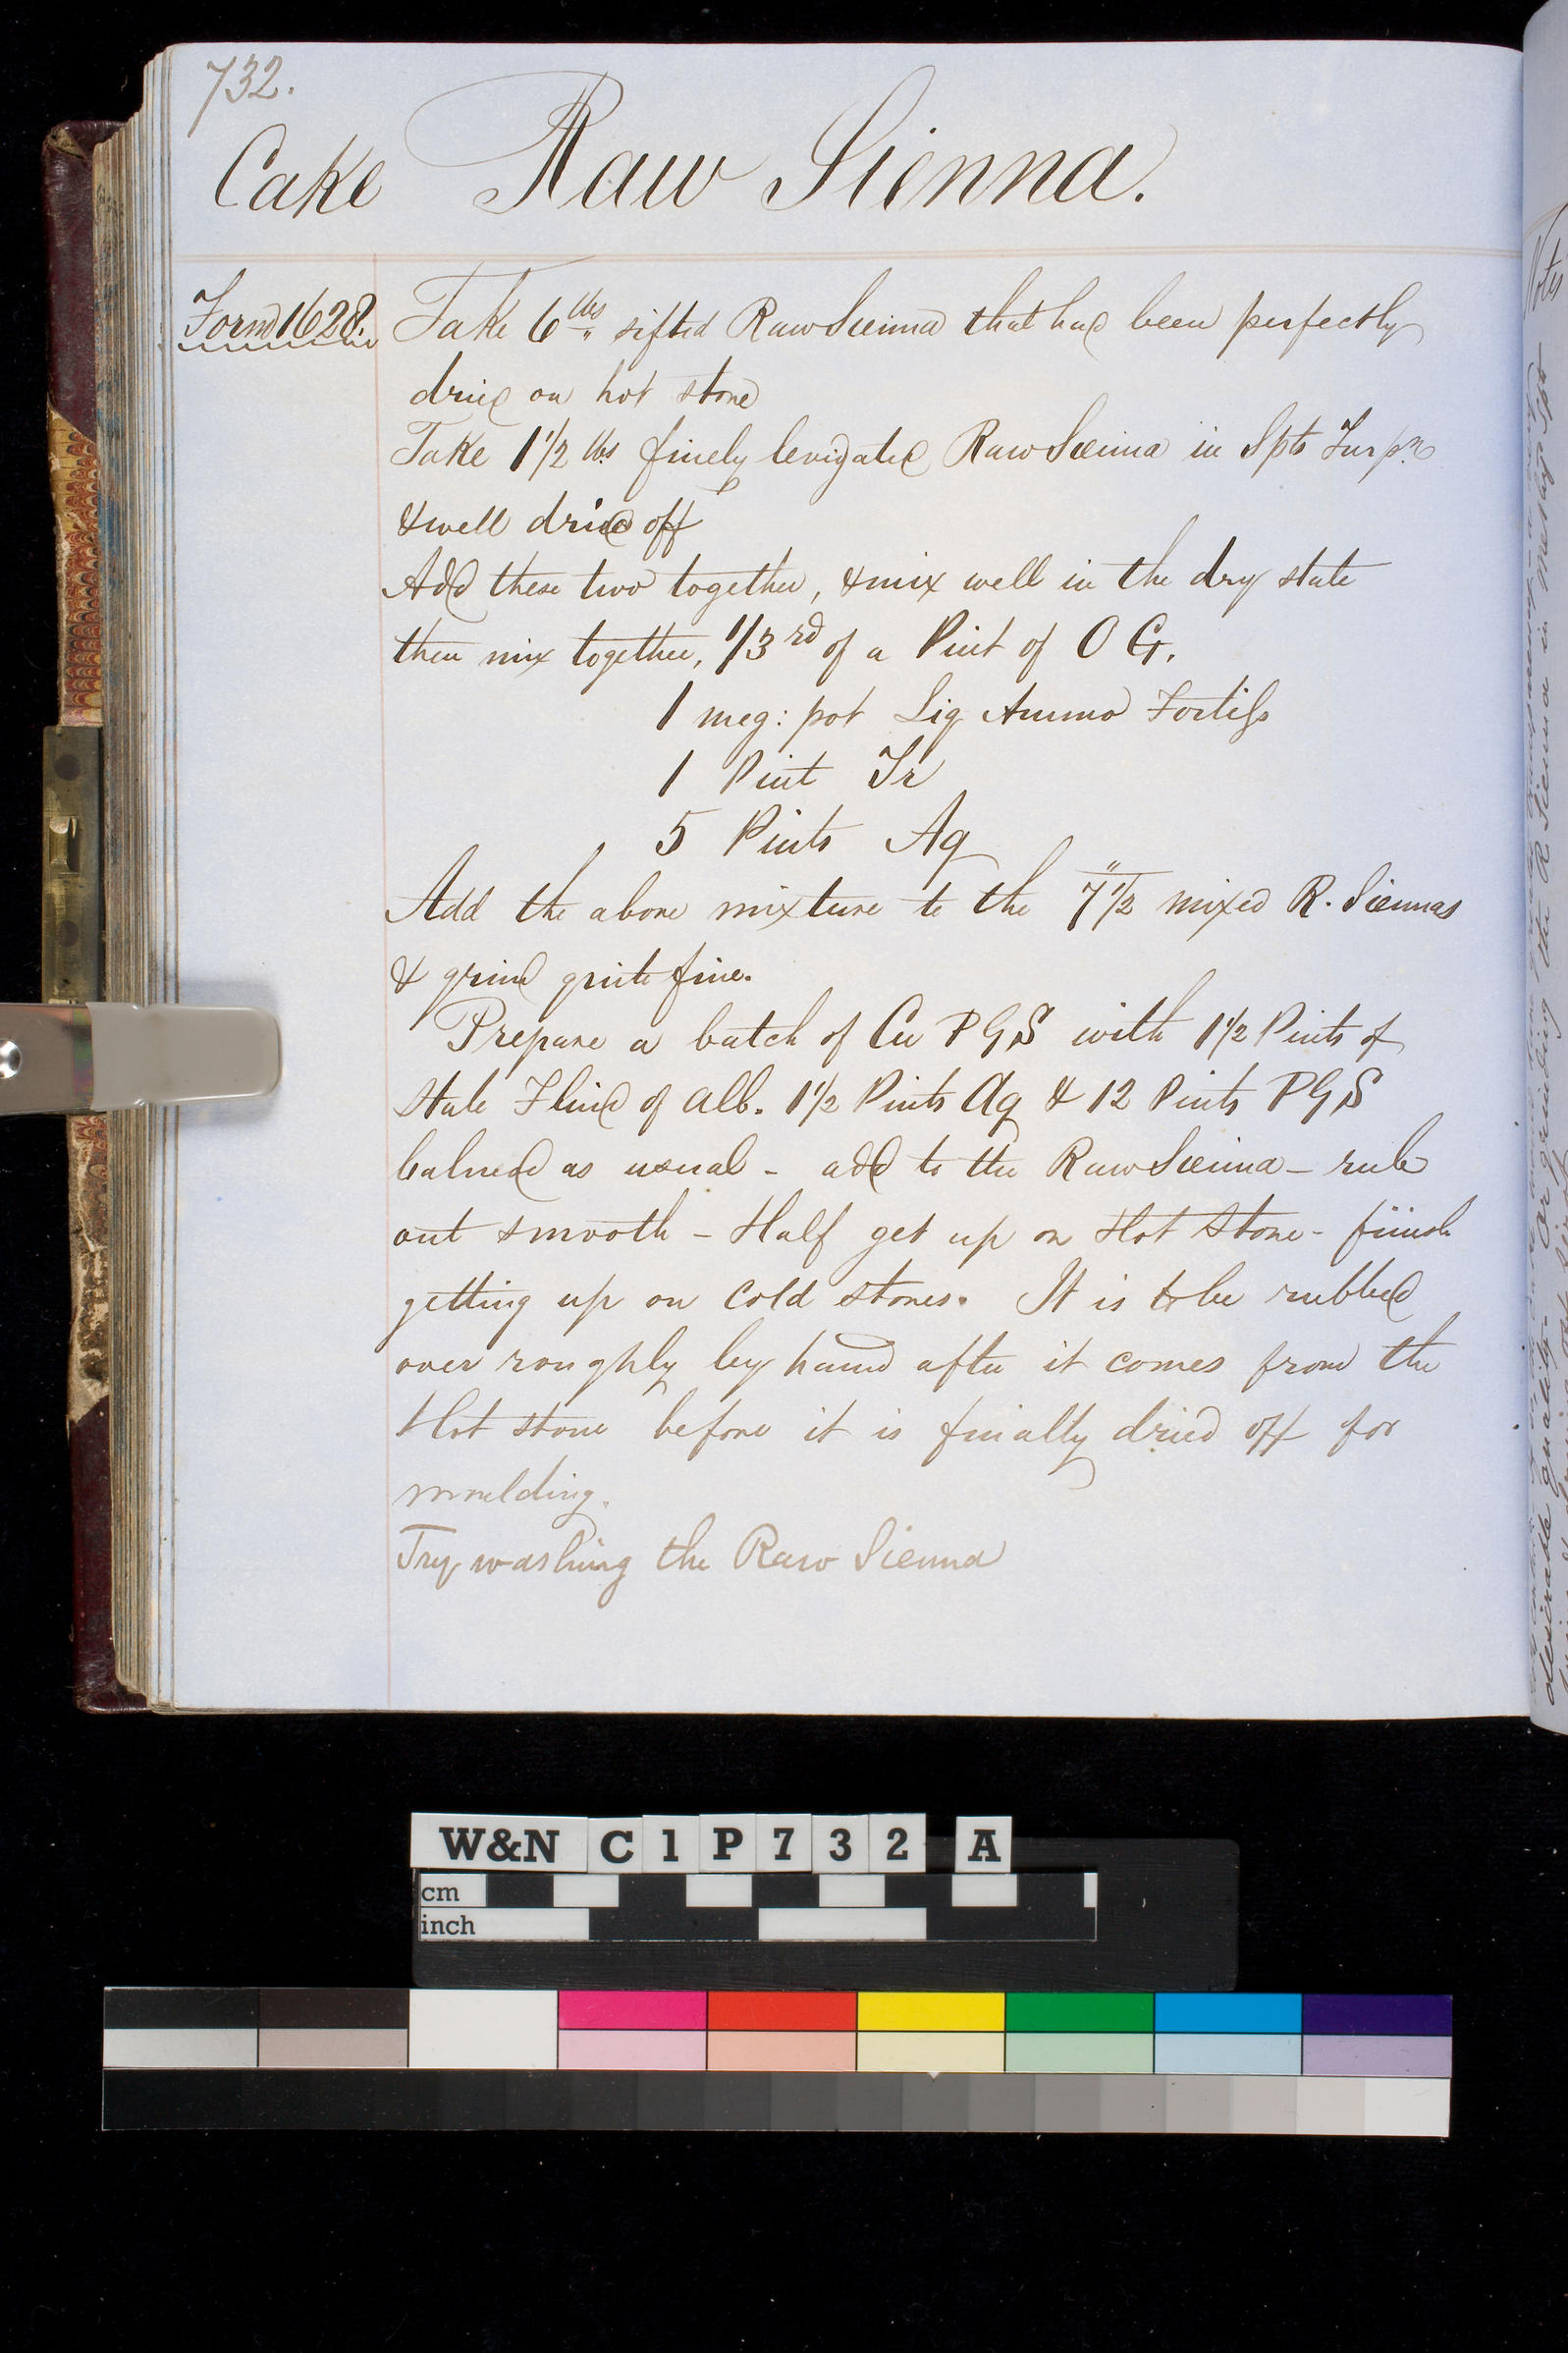 732.
Cake Raw Sienna.
Form 1628.
Take 6 lbs sifted Raw Sienna that has been perfectly
dried on hot stone
Take 1 1/2 lbs finely levigated Raw Sienna in Spts Turpn
& well dried off
Add these two together, & mix well in the dry state
then mix together, 1/3rd of a Pint of O G.
1 meg: pot Liq Ammo Fortiss
1 Pint Tr
5 Pints Aq
Add the above mixture to the 7 1/2 mixed R. Siennas
& grind quite fine.
Prepare a batch of Cu P G S with 1 1/2 Pints of
Stale Fluid of alb. 1 1/2 Pints Aq & 12 Pints P G S
balned as usual - add to the Raw Sienna - rub
out smooth - Half get up on Hot Stone - finish
getting up on Cold stones. It is to be rubbed
over roughly by hand after it comes from the
Hot stone before it is finally dried off for
moulding.
Try washing the Raw Sienna
W&N C 1 P 7 3 2 A
cm
inch